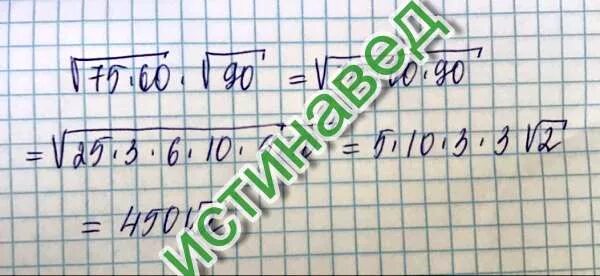 √75·60 · √90 = √ 0·90
= √25·3·6·10· = 5·10·3·3√2
= 450√
истинавед